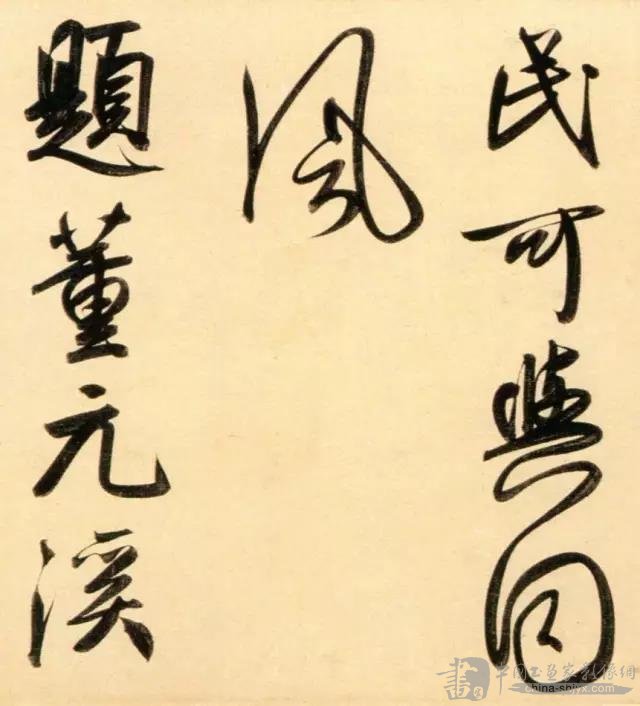 民可與同
風
題董元溪
書
中国书画家影像網
china-shjyx.com